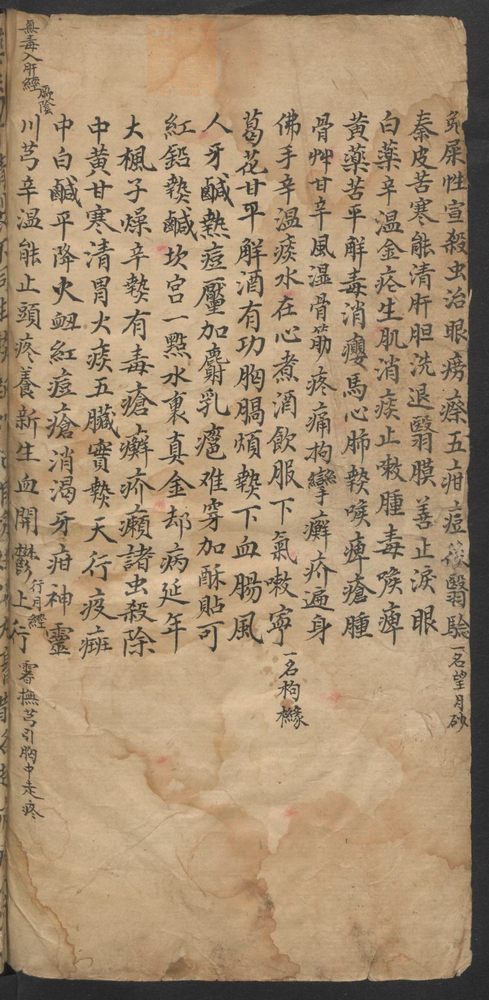 兎屎性宣殺虫治眼癆瘵五疳痘後翳驗一名望月砂
秦皮苦寒能清肝胆洗退翳膜善止淚眼
白藥辛温金疮生肌消痰止嗽腫毒喉痺
黄藥苦平解毒消癭馬心肺熱喉痺瘡腫
骨艸甘辛風湿骨筋疼痛拘攣癬疥遍身
佛手辛温痰水在心煮酒飲服下氣嗽寧一名枸櫞
葛花甘平解酒有功胸膈煩熱下血腸風
人牙鹹熱痘靨加麝乳癰难穿加酥貼可
紅鉛熱鹹坎宫一點水裏真金却病延年
大楓子燥辛熱有毒瘡癬疥癩諸虫殺除
中黄甘寒清胃火痰五臟實熱天行疫癍
中白鹹平降火衂紅痘瘡消渴牙疳神靈
川芎辛温能止頭疼養新生血開欝上行
無毒入肝經厥陰
行月經
撫芎引胸中走疼